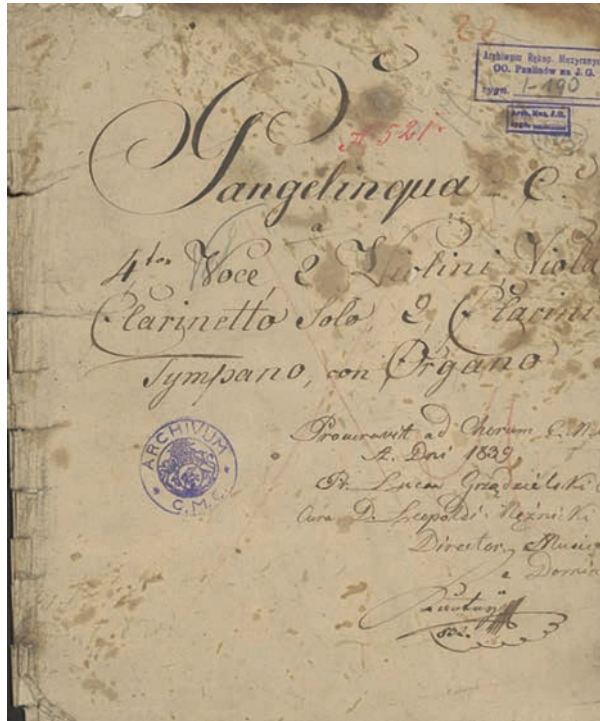 22
Archiwum Rękop. Muzycznych
OO. Paulinów na J. G.
sygn. I-190
Arch. Muz. J. G.
A 521.
Pangelinqua C.
a
4tor Voce, 2 Violini, Viola
Clarinetto Solo, 2, Clarini
Tympano, con Organo
Procuravit ad Chorum C. M.
A. Dni 1839
Pr. Lucas Grządzielski
Cura D. Leopoldi Nęźnicki
Director, Music
e Domin
ARCHIVUM
C.M.C.